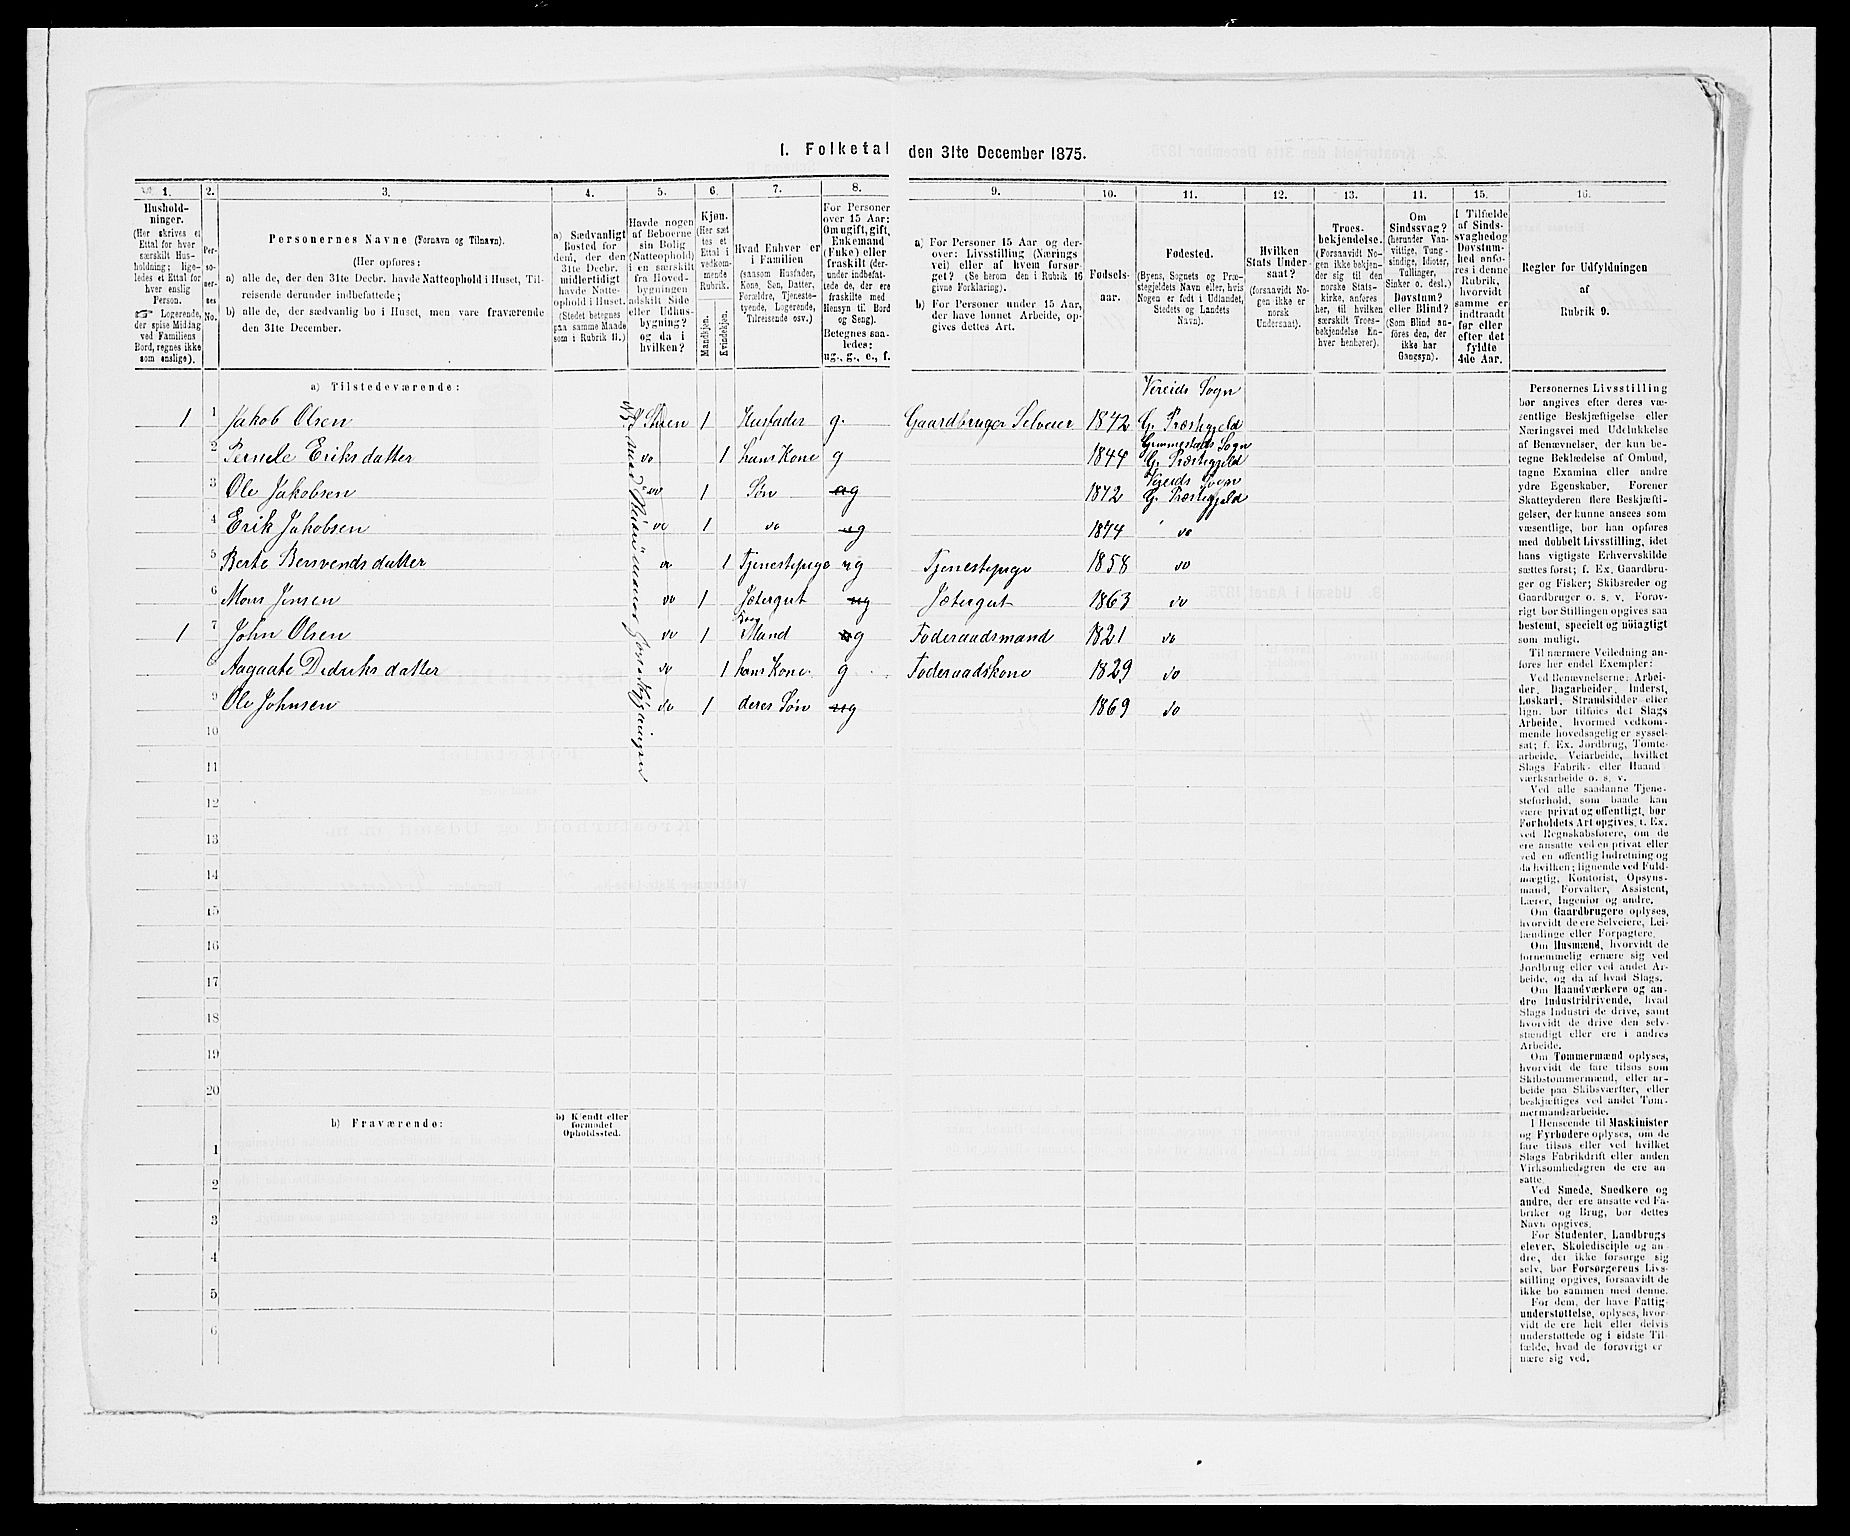 1. Folketal den 31te December 1875.
1. 2. 3. 4. 5. 6. 7. 8. 9. 10. 11. 12. 13. 14. 15. 16.
Hushold-
ninger.
(Her skrives et
Ettal for hver
særskilt Hus-
holdning; lige-
ledes et Ettal for
hver enslig
Person.
☞ Logerende,
der spise Middag
ved Familiens
Bord, regnes ikke
som enslige).
Per-
so-
ner-
nes
No.
Personernes Navne (Fornavn og Tilnavn).
(Her opføres:
a) alle de, der den 31te Decbr. havde Natteophold i Huset, Til-
reisende derunder indbefattede;
b) alle de, der sædvanlig bo i Huset, men vare fraværende
den 31te December.
a) Sædvanligt
Bosted for
dem, der den
31te Decbr.
midlertidigt
havde Natte-
ophold i Huset.
(Stedet betegnes
paa samme Maade
som i Rubrik 11.)
Havde nogen
af Beboerne
sin Bolig
(Natteophold)
i en særskilt
fra Hoved-
bygningen
adskilt Side
eller Udhus-
bygning?
og da i
hvilken?
Kjøn.
(Her sæt
tes et
Ettal i
vedkom-
mende
Rubrik.
Mandkjøn.
Kvindekjøn.
Hvad Enhver er
i Familien
(saasom Husfader,
Kone, Søn, Datter,
Forældre, Tjeneste-
tyende, Logerende,
Tilreisende osv.)
For Personer
over 15 Aar:
Om ugift, gift,
Enkemand
(Enke) eller
fraskilt (der-
under indbefat-
tede de, der ere
fraskilte med
Hensyn til Bord
og Seng).
Betegnes saa-
ledes:
ug., g., e., f.
a) For Personer 15 Aar og der-
over: Livsstilling (Nærings
vei) eller af hvem forsør-
get? (Se herom den i Rubrik 16
givne Forklaring).
b) For Personer under 15 Aar,
der have lønnet Arbeide, op-
gives dettes Art.
Fødsels-
aar.
Fødested.
(Byens, Sognets og Præ-
stegjeldets Navn eller, hvis
Nogen er født i Udlandet,
Stedets og Landets
Navn).
Hvilken
Stats Under-
saat?
(forsaavidt No-
gen ikke er
norsk
Undersaat).
Troes-
bekjendelse.
(Forsaavidt No-
gen ikke bekjen-
der sig til den
norske Stats-
kirke, anføres
her, til hvilken
særskilt Troes-
bekjendelse En-
hver henhører).
Om
Sindssvag?
(herunder Van-
vittige, Tung-
sindige, Idioter,
Tullinger,
Sinker o. desl.)
Døvstum?
eller Blind?
(Som Blind an-
føres den, der
ikke har
Gangsyn).
I Tilfælde
af Sinds-
svaghed og
Døvstum-
hed anfø-
res i denne
Rubrik,
hvorvidt
samme er
indtraadt
før eller
efter det
fyldte
4de Aar.
Regler for Udfyldningen
af
Rubrik 9.
a) Tilstedeværende:
1 1 Jakob Olsen 1 Husfader g. Gaardbruger Selveier 1842 Vereids Sogn G. Præstegjeld
2 Pernele Eriksdatter do 1 hans Kone g 1844 Gimmestads Sogn G. Præstegjeld
3 Ole Jakobsen do 1 Søn ug 1872 Vereids Sogn G. Præstegjeld
4 Erik Jakobsen do 1 do ug 1874 do
5 Berte Bersvendsdatter do 1 Tjenestepige ug Tjenestepige 1858 do
6 Mons Jensen do 1 Jætergut ug Jætergut 1863 do
1 7 John Olsen do 1 Mand g Føderaadsmand 1821 do
Aagaate Didriksdatter do 1 hans Kone g Føderaadskone 1829 do
9 Ole Johnsen do 1 deres Søn ug 1869 do
10
11
12
13
14
15
16
17
18
19
20
b) Fraværende:
b) Kjendt eller
formodet
Opholdssted.
1
2
3
4
5
6
Personernes Livsstilling
bør angives efter deres væ-
sentlige Beskjæftigelse eller
Næringsvei med Udelukkelse
af Benævnelser, der kun be-
tegne Beklædelse af Ombud,
tagne Examina eller andre
ydre Egenskaber. Forener
Skatteyderen flere Beskjæfti-
gelser, der kunne ansees som
væsentlige, bør han opføres
med dobbelt Livsstilling, idet
hans vigtigste Erhvervskilde
sættes først; f. Ex. Gaardbru-
ger og Fisker; Skibsreder og
Gaardbruger o. s. v. Forøv-
rigt bør Stillingen opgives saa
bestemt, specielt og nøiagtigt
som muligt.
Til nærmere Veiledning an-
føres her endel Exempler:
Ved Benævnelserne: Arbei-
der, Dagarbeider, Inderst,
Løskarl, Strandsidder eller
lign. bør tilføies det Slags
Arbeide, hvormed vedkom-
mende hovedsagelig er syssel-
sat; f. Ex. Jordbrug, Tømte-
arbeide, Veiarbeide, hvilket
Slags Fabrik- eller Haand-
værksarbeide o. s. v.
Ved alle saadanne Tjene-
steforhold, som baade kan
være privat og offentligt, bør
Forholdets Art opgives, t. Ex.
ved Regnskabsførere, om de
ere ansatte ved en privat eller
ved en offentlig Indretning og
da hvilken; lignende ved Fuld-
mægtig, Kontorist, Opsyns-
mand, Forvalter, Assistent,
Lærer, Ingeniør og andre.
Om Gaardbrugere oplyses,
hvorvidt de ere Selveiere, Lei-
lændinge eller Forpagtere.
Om Husmænd, hvorvidt de
fornemmelig ernære sig ved
Jordbrug eller ved andet Ar-
beide, og da af hvad Slags.
Om Haandværkere og an-
dre Industridrivende, hvad
Slags Industri de drive, samt
hvorvidt de drive den selv-
stændigt eller ere i andres
Arbeide.
Om Tømmermænd oplyses,
hvorvidt de fare tilsøs som
Skibstømmermænd, eller ar-
beide paa Skibsværfter, eller
beskjæftiges ved andet Tøm-
mermandsarbeide.
I Henseende til Maskinister
og Fyrbødere oplyses, om de
fare tilsøs eller ved hvilket
Slags Fabrikdrift eller anden
Virksomhedsgren de ere an-
satte.
Ved Smede, Snedkere og
andre, der ere ansatte ved Fa-
briker og Brug, bør dettes
Navn opgives.
For Studenter, Landbrugs-
elever, Skoledisciple og an-
dre, der ikke forsørge sig
selv, bør Forsørgerens Livs-
stilling opgives, forsaavidt de
ikke bo sammen med denne.
For dem, der have Fattig-
understøttelse, oplyses, hvor-
vidt de ere helt eller delvis
understøttede og i sidste Til-
fælde, hvad de forøvrigt er-
nære sig ved.